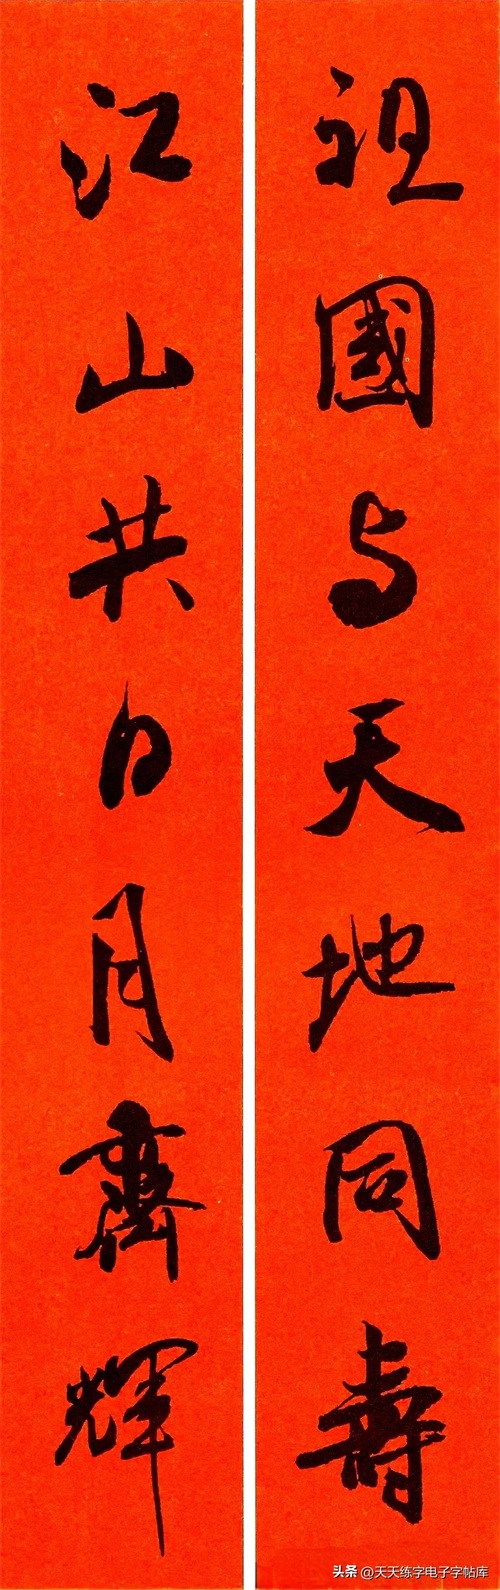 祖國与天地同壽
江山共日月齊輝
头条 @天天练字电子字帖库